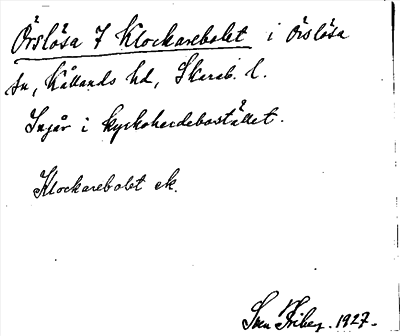 Örslösa 7 Klockarebolet i Örslösa
sn, Kållands hd, Skarab. l.
Ingår i kyrkoherdebostället.
Klockarebolet ek.
Sven Friberg. 1927.